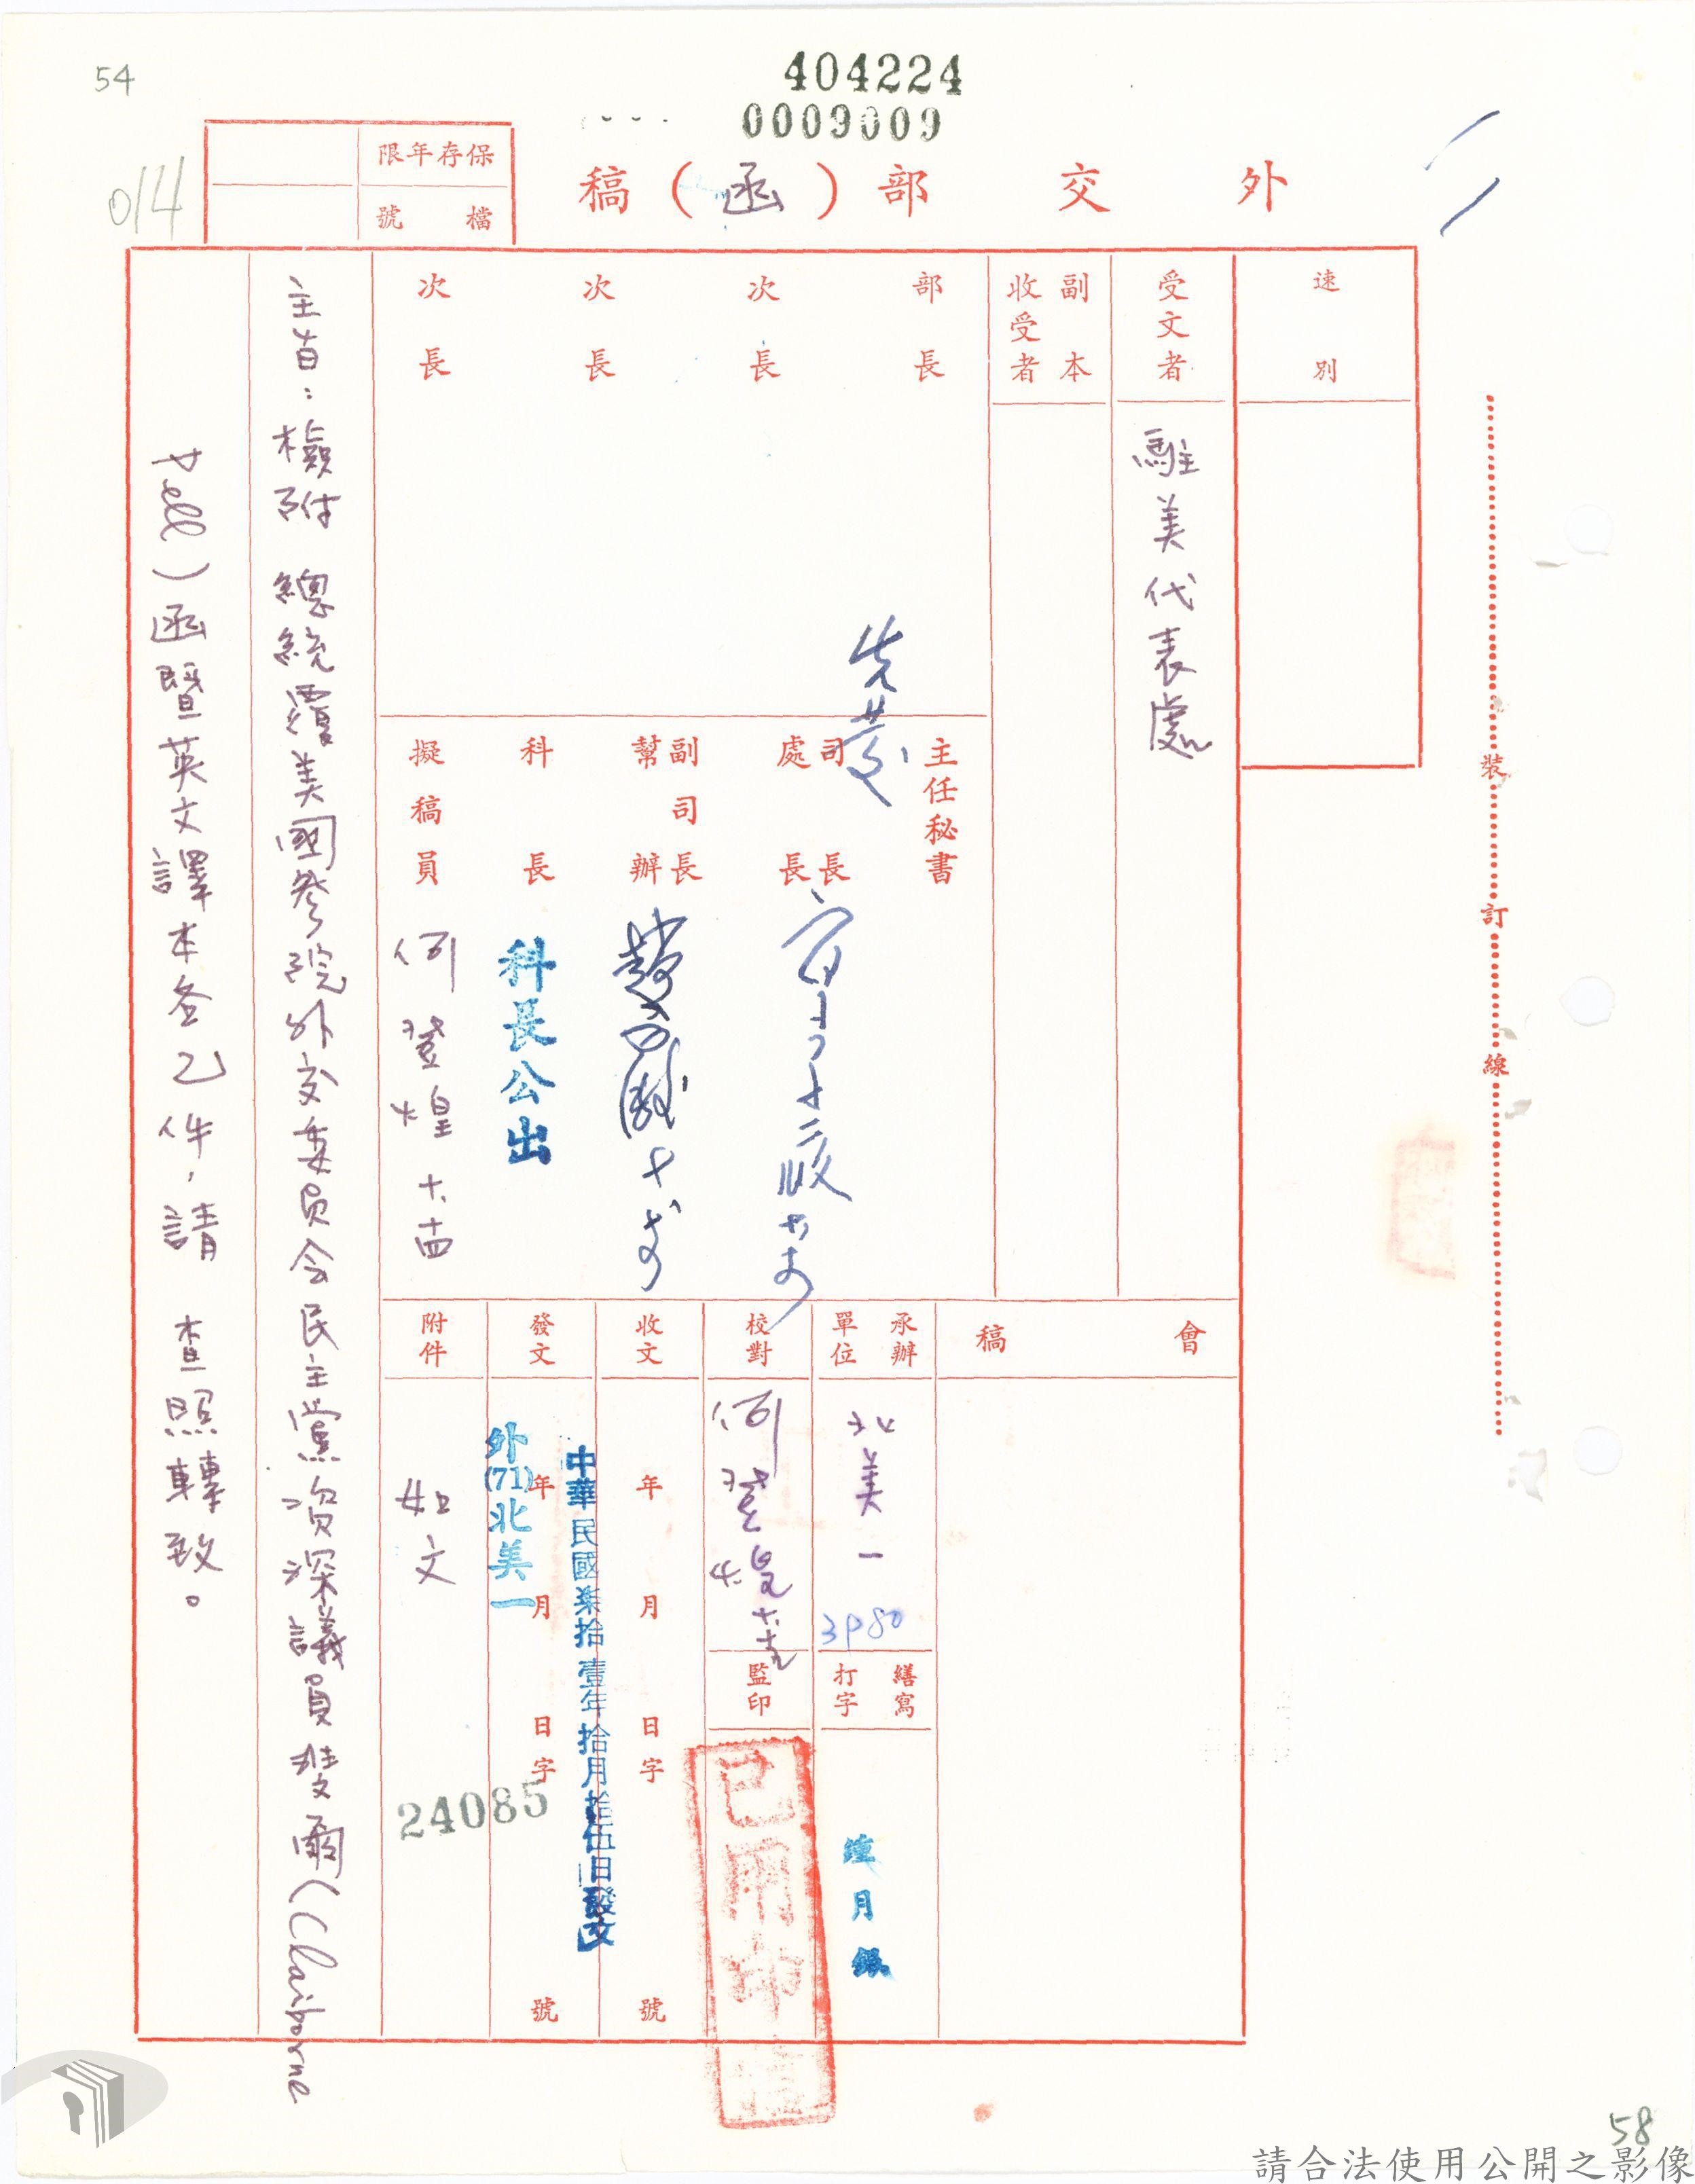 54
404224
0009009
014
保存年限
檔號
外交部(函)稿
速別
受文者
駐美代表處
副本
收受者
部長
次長
次長
次長
主任秘書
司長
處長
副司長
幫辦
科長
科長公出
擬稿員
何登煌 十、十四
會稿
承辦
單位
北美一
3P80
繕寫
打字
校對
何登煌
監印
已用印
收文
年 月 日 字 號
發文
年 月 日 字 號
中華民國柒拾壹年拾月拾伍日發文
外(71)北美一
24085
附件
如文
主旨:檢附 總統覆美國參院外交委員會民主黨次深議員斐爾(Claiborne
Pell)函暨英文譯本各乙件,請 查照轉致。
裝
訂
線
58
請合法使用公開之影像